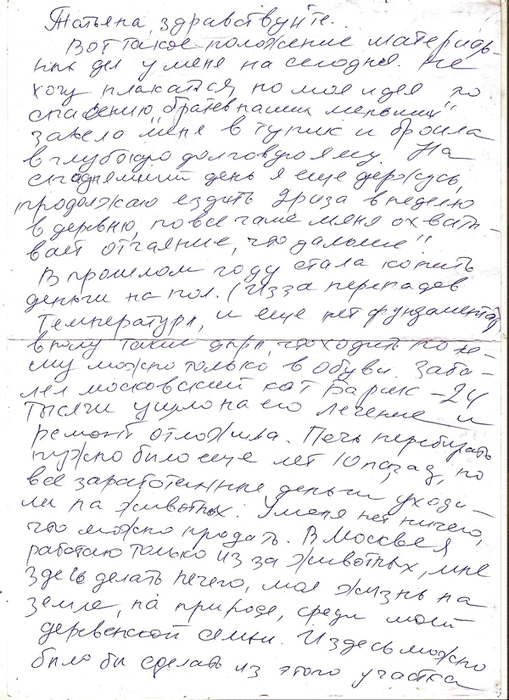 Татьяна, здравствуйте..
Вот такое положение материаль-
ных дел у меня на сегодня. Не
хочу плакаться, но моя идея по
спасению "братьев наших меньших"
завела меня в тупик и бросила
в глубокую долговую яму. На
сегодняшний день я еще держусь,
продолжаю ездить 2 раза в неделю
в деревню, но все чаще меня охваты-
вает отчаяние, что дальше!!
В прошлом году стала копить
деньги на пол. (Из за перепадов
температур, и еще нет фундамента)
в полу такие дыры, что ходить по не-
му можно только в обуви. Забо-
лел московский кот Барсик - 24
тысячи ушло на его лечение и
ремонт отложила. Печь перебирать
нужно было еще лет 10 назад, но
все заработанные деньги уходи-
ли на животных. У меня нет ничего,
что можно продать. В Москве я
работаю только из за животных, мне
здесь делать нечего, моя жизнь на
земле, на природе, среди моей
деревенской семьи. И здесь можно
было бы сделать из этого участка